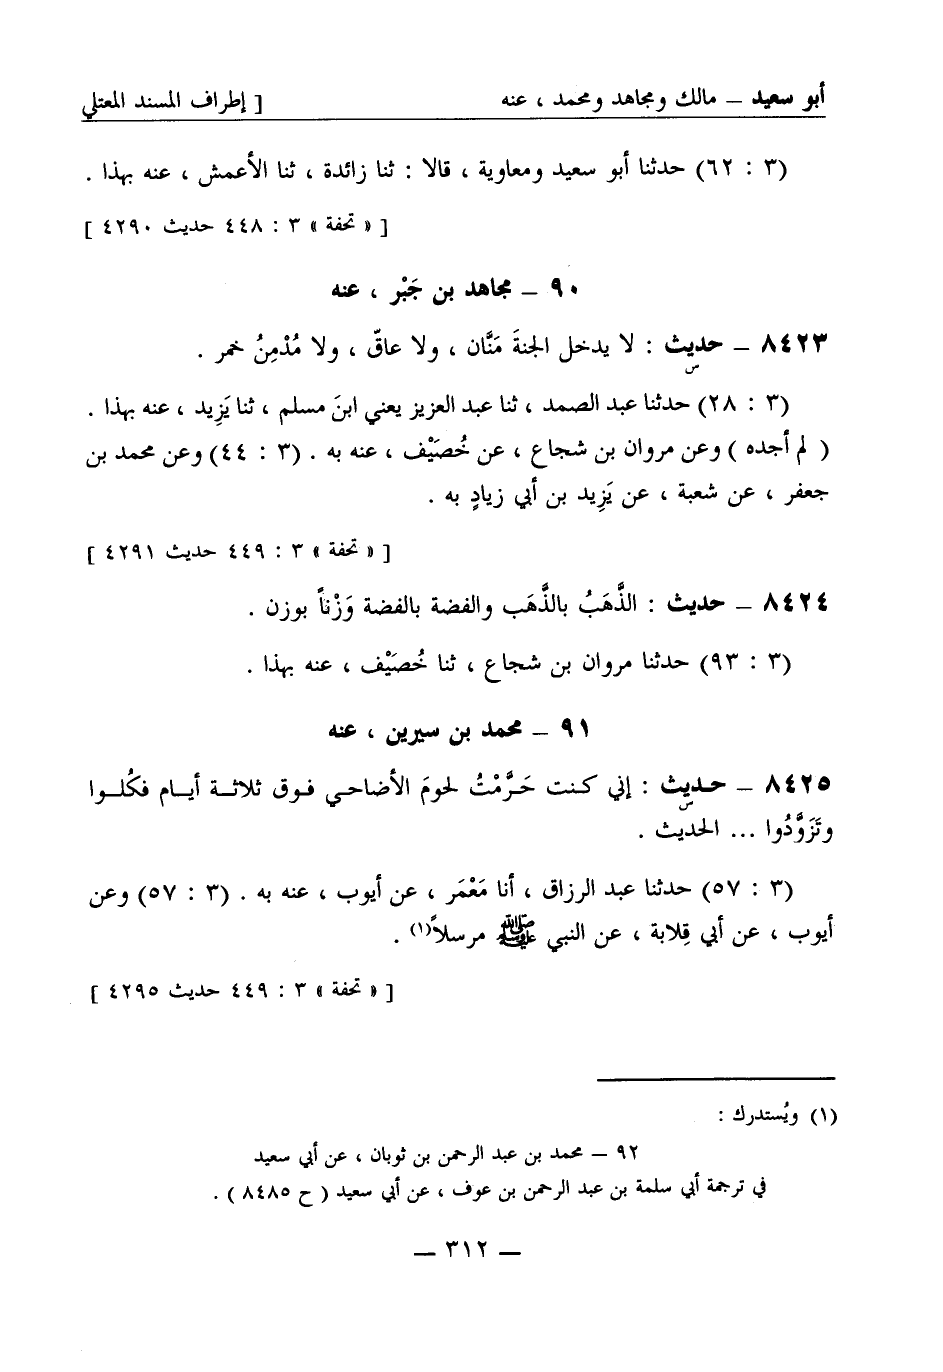 أبو سعيد – مالك ومجاهد ومحمد ، عنه [ إطراف المسند المعتلي
(٣ : ٦٢) حدثنا أبو سعيد ومعاوية ، قالا : ثنا زائدة ، ثنا الأعمش ، عنه بهذا .
[ « تحفة » ٣ : ٤٤٨ حديث ٤٢٩٠ ]
٩٠ – مجاهد بن جَبْر ، عنه
٨٤٢٣ – حديث : لا يدخل الجنةَ مَنَّان ، ولا عاقّ ، ولا مُدْمِنُ خمر .
س
(٣ : ٢٨) حدثنا عبد الصمد ، ثنا عبد العزيز يعني ابنَ مسلم ، ثنا يَزِيد ، عنه بهذا .
( لم أجده ) وعن مروان بن شجاع ، عن خُصَيْف ، عنه به . (٣ : ٤٤) وعن محمد بن
جعفر ، عن شعبة ، عن يَزِيد بن أبي زيادٍ به .
[ « تحفة » ٣ : ٤٤٩ حديث ٤٢٩١ ]
٨٤٢٤ – حديث : الذَّهَبُ بالذَّهَب والفضة بالفضة وَزْناً بوزن .
(٣ : ٩٣) حدثنا مروان بن شجاع ، ثنا خُصَيْف ، عنه بهذا .
٩١ – محمد بن سيرين ، عنه
٨٤٢٥ – حديث : إني كنت حَرَّمْتُ لحومَ الأضاحي فوق ثلاثة أيام فكُلوا
س
وتَزَوَّدُوا ... الحديث .
(٣ : ٥٧) حدثنا عبد الرزاق ، أنا مَعْمَر ، عن أيوب ، عنه به . (٣ : ٥٧) وعن
أيوب ، عن أبي قِلابة ، عن النبي ﷺ مرسلاً(١) .
[ « تحفة » ٣ : ٤٤٩ حديث ٤٢٩٥ ]
(١) ويُستدرك :
٩٢ – محمد بن عبد الرحمن بن ثوبان ، عن أبي سعيد
في ترجمة أبي سلمة بن عبد الرحمن بن عوف ، عن أبي سعيد ( ح ٨٤٨٥ ) .
– ٣١٢ –